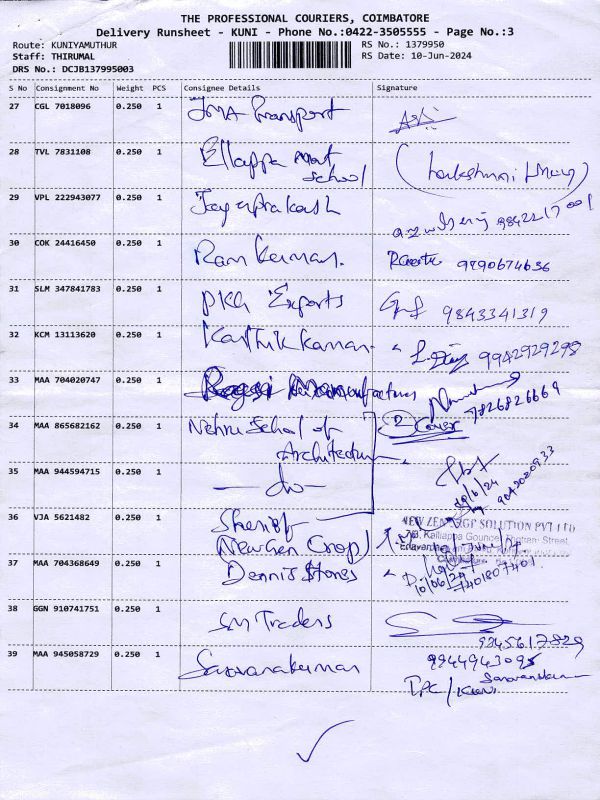 THE PROFESSIONAL COURIERS, COIMBATORE
Delivery Runsheet - KUNI - Phone No.:0422-3505555 - Page No.:3
Route: KUNIYAMUTHUR
RS No.: 1379950
Staff: THIRUMAL
RS Date: 10-Jun-2024
DRS No.: DCJB137995003
S No Consignment No Weight PCS Consignee Details Signature
27 CGL 7018096 0.250 1 Transport
28 TVL 7831108 0.250 1 Ellappa Mat
School
29 VPL 222943077 0.250 1 Jayaprakash
30 COK 24416450 0.250 1 Ram Kumar. 9790674636
31 SLM 347841783 0.250 1 PKG Exports 9843341319
32 KCM 13113620 0.250 1 Karthik Kannan 9942929298
33 MAA 704020747 0.250 1 7826826669
34 MAA 865682162 0.250 1 Nehru School of 2 Cover
Architecture
35 MAA 944594715 0.250 1 -do- 9042020933
36 VJA 5621482 0.250 1 Sheriff
NEW ZEN AGP SOLUTION PVT LTD
NewGen Crop
37 MAA 704368649 0.250 1 Dennis Stones
10/06/24 7401807401
38 GGN 910741751 0.250 1 SM Traders
9345617829
39 MAA 945058729 0.250 1 Saravanakumar 9944943095
Saravanakumar